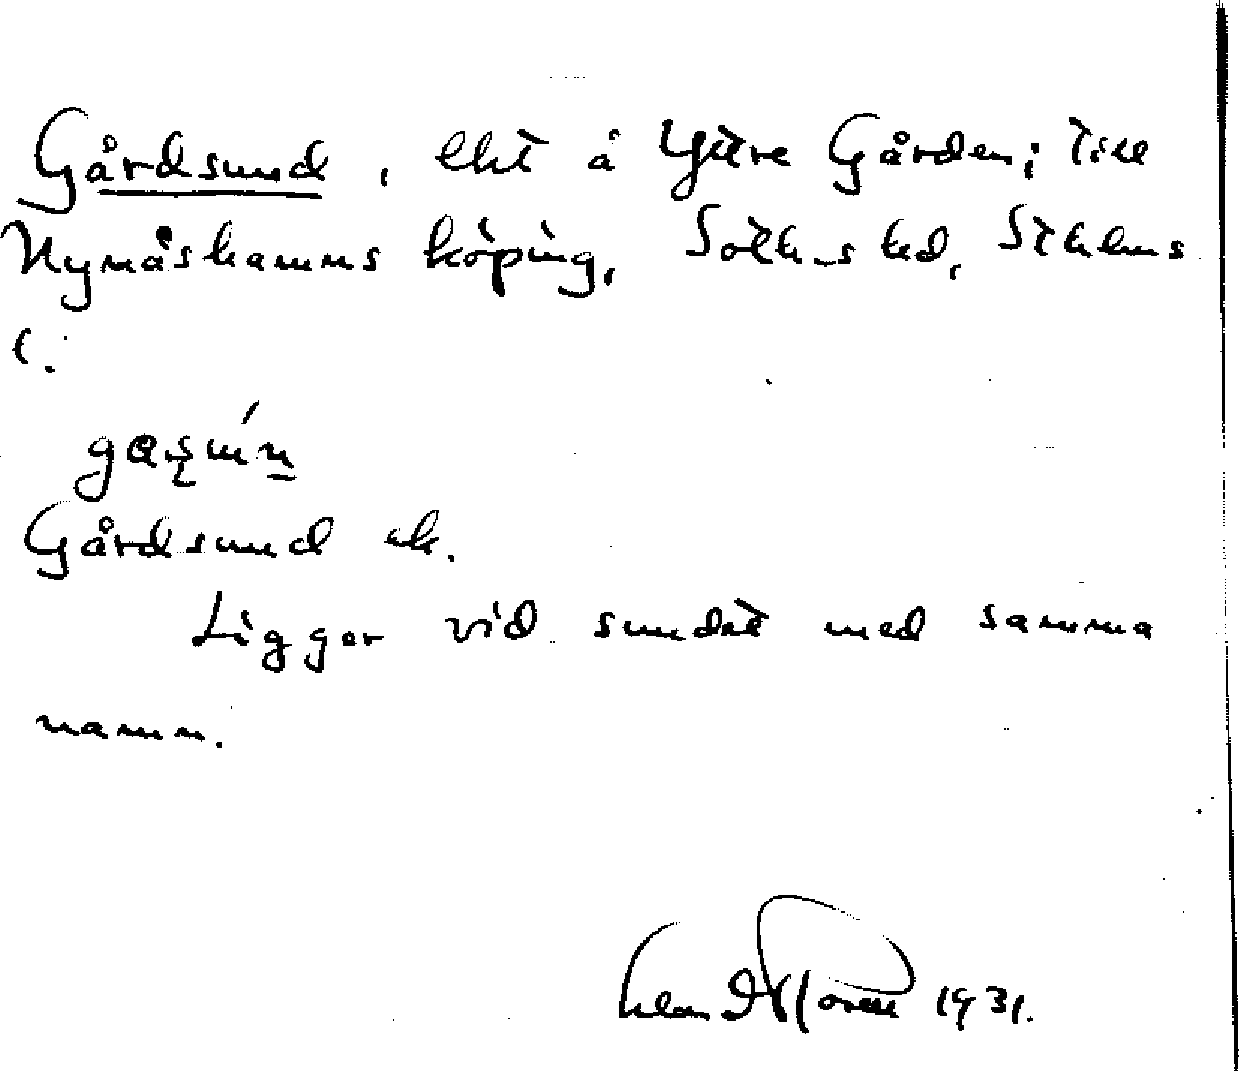 Gårdsund, lht å Yttre Gården; till
Nynäshamns köping, Sotth-s hd, Sthlms
l.
Gårdsund ek.
Ligger vid sundet med samma
namn.
1931.